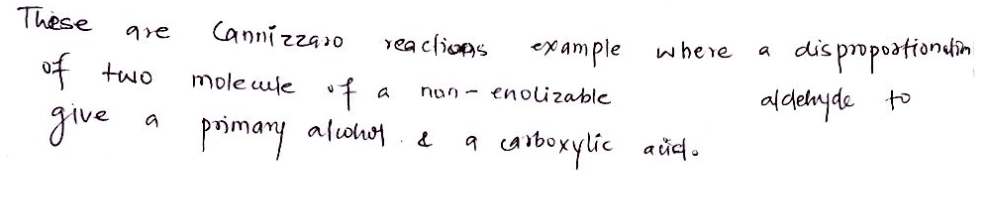 These are Cannizzaro reactions example where a disproportionation
of two molecule of a non-enolizable aldehyde to
give a primary alcohol & a carboxylic acid.